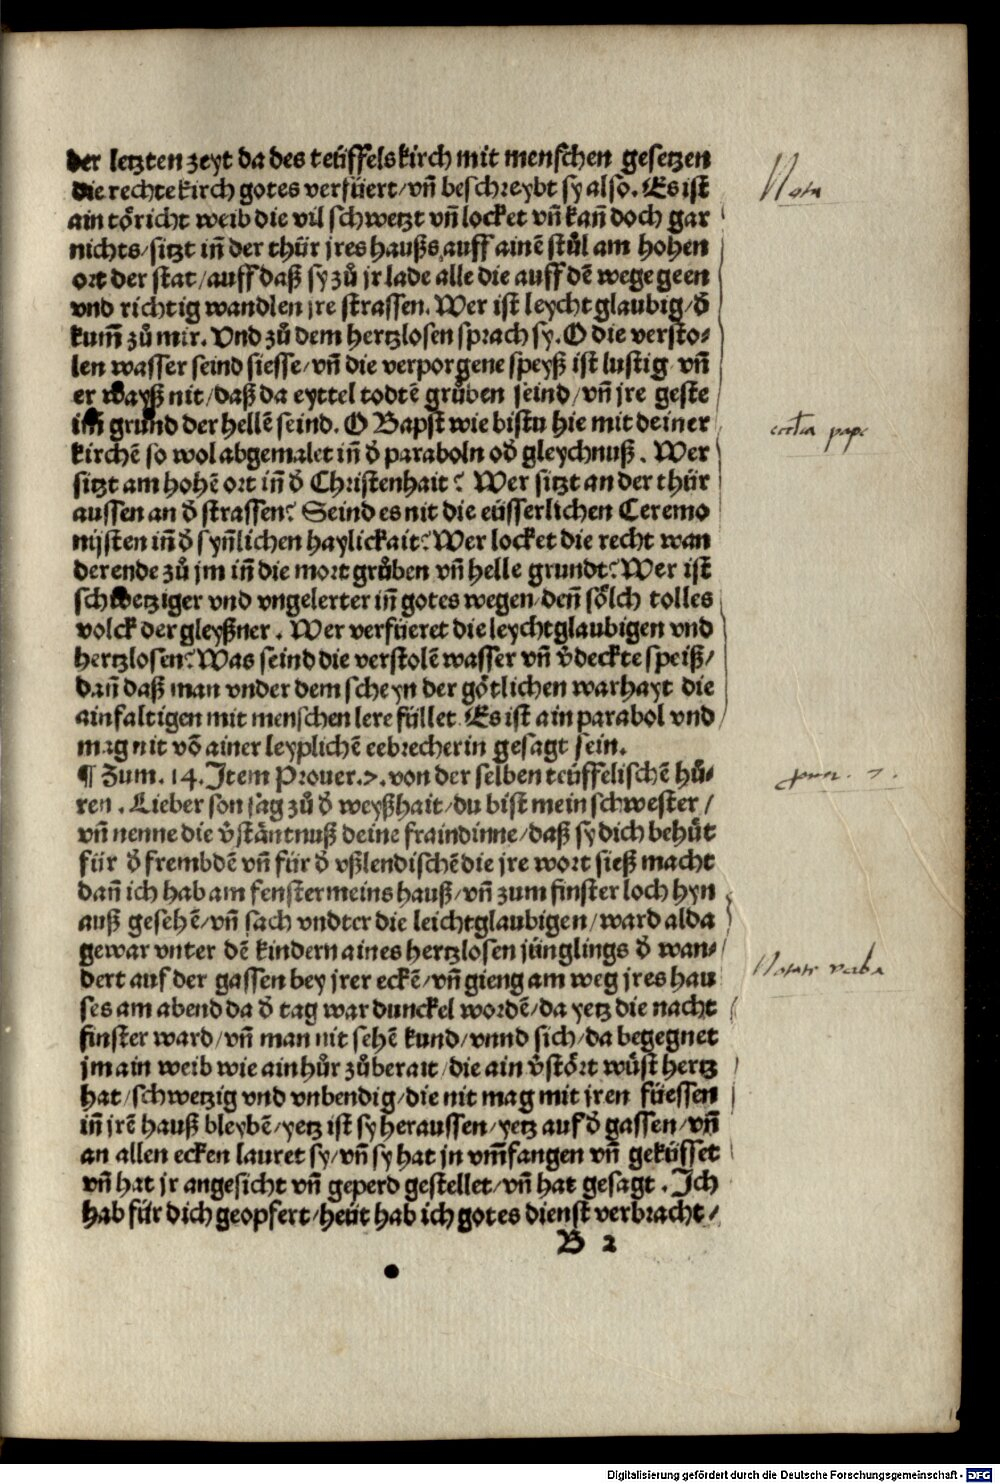 der letzten zeyt da des teüffels kirch mit menschen gesetzen
die rechte kirch gotes verfüert/vn̄ beschreybt sy also. Es ist
ain tôricht weib die vil schwetzt vn̄ locket vn̄ kan̄ doch gar
nichts/sitzt in̄ der thür jres haußs auff ainē stůl am hohen
ort der stat/auff daß sy zů jr lade alle die auff dē wege geen
vnd richtig wandlen jre strassen. Wer ist leycht glaubig/d̄
kum̄ zů mir. Vnd zů dem hertzlosen sprach sy. O die versto⸗
len wasser seind siesse/vn̄ die verporgene speyß ist lustig vn̄
er wayß nit/daß da eyttel todtē grůben seind/vn̄ jre geste
im̄ grund der hellē seind. O Bapst wie bistu hie mit deiner
kirchē so wol abgemalet in̄ d̄ paraboln od̄ gleychnuß. Wer
sitzt am hohē ort in̄ d̄ Christenhait? Wer sitzt an der thür
aussen an d̄ strassen? Seind es nit die eüsserlichen Ceremo
nijsten in̄ d̄ syn̄lichen haylickait? Wer locket die recht wan
derende zů jm in̄ die mort grůben vn̄ helle grundt? Wer ist
schwetziger vnd vngelerter in̄ gotes wegen/den̄ sôlch tolles
volck der gleyßner. Wer verfüeret die leychtglaubigen vnd
hertzlosen? Was seind die verstolē wasser vn̄ v̄deckte speiß/
dan̄ daß man vnder dem scheyn der gôtlichen warhayt die
ainfaltigen mit menschen lere füllet. Es ist ain parabol vnd
mag nit vō ainer leyplichē eebrecherin gesagt sein.
¶ Zum. 14. Item Prouer. 7. von der selben teüffelischē hů⸗
ren. Lieber son sag zů d̄ weyßhait/du bist mein schwester/
vn̄ nenne die v̄stāntnuß deine fraindinne/daß sy dich behůt
für d̄ frembdē vn̄ für d̄ vßlendischē die jre wort sieß macht
dan̄ ich hab am fenster meins hauß/vn̄ zum finster loch hyn
auß gesehē/vn̄ sach vndter die leichtglaubigen/ward alda
gewar vnter dē kindern aines hertzlosen jünglings d̄ wan⸗
dert auf der gassen bey jrer eckē/vn̄ gieng am weg jres hau
ses am abend da d̄ tag war dunckel wordē/da yetz die nacht
finster ward/vn̄ man nit sehē kund/vnnd sich/da begegnet
jm ain weib wie ain hůr zůberait/die ain v̄stôrt wüst hertz
hat/schwetzig vnd vnbendig/die nit mag mit jren füessen
in̄ jrē hauß bleybē/yetz ist sy heraussen/yetz auf d̄ gassen/vn̄
an allen ecken lauret sy/vn̄ sy hat jn vm̄fangen vn̄ geküsset
vn̄ hat jr angesicht vn̄ geperd gestellet/vn̄ hat gesagt. Ich
hab für dich geopfert/heüt hab ich gotes dienst verbracht/
B 2
Nota
contra pape
prou. 7.
Notate verba
Digitalisierung gefördert durch die Deutsche Forschungsgemeinschaft - DFG